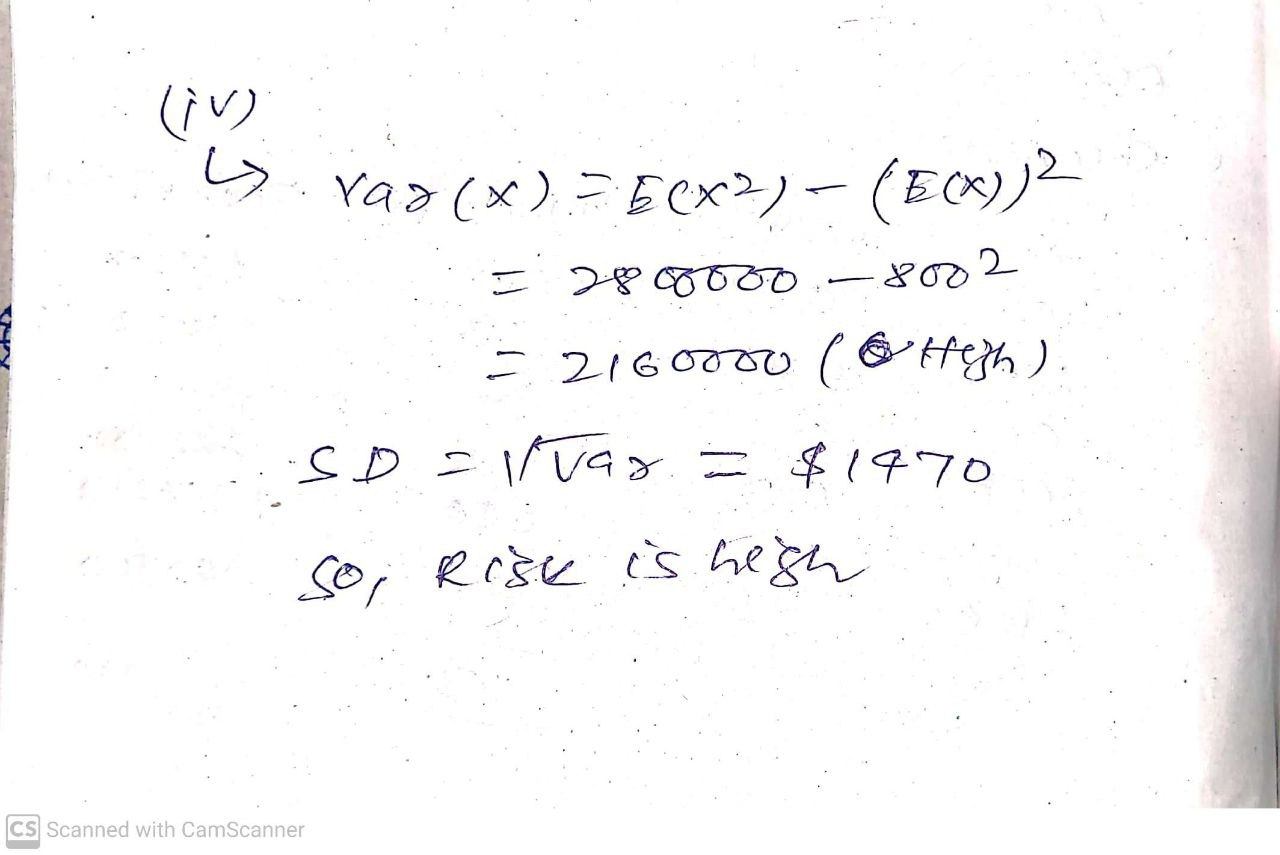 (iv)
↳ Var(X) = E(X²) - (E(X))²
= 2800000 - 800²
= 2160000 (High)
SD = √Var = $1470
So, Risk is high
CS Scanned with CamScanner